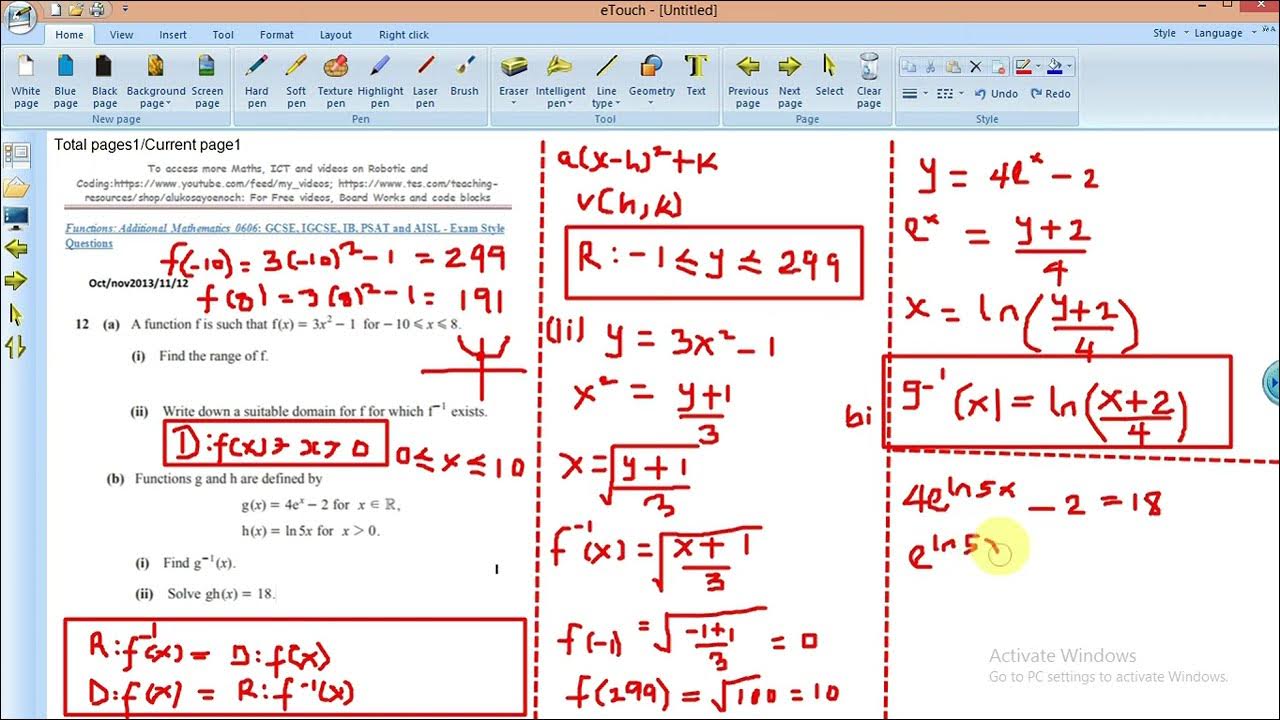 eTouch - [Untitled]
Home View Insert Tool Format Layout Right click Style Language
White page Blue page Black page Background page Screen page Hard pen Soft pen Texture pen Highlight pen Laser pen Brush Eraser Intelligent pen Line type Geometry Text Previous page Next page Select Clear page Undo Redo
New page Pen Tool Page Style
Total pages1/Current page1
To access more Maths, ICT and videos on Robotic and
Coding:https://www.youtube.com/feed/my_videos; https://www.tes.com/teaching-
resources/shop/alukosayoenoch: For Free videos, Board Works and code blocks
Functions: Additional Mathematics 0606: GCSE, IGCSE, IB, PSAT and AISL - Exam Style
Questions
f(-10) = 3(-10)² - 1 = 299
Oct/nov2013/11/12
f(8) = 3(8)² - 1 = 191
12 (a) A function f is such that f(x) = 3x² − 1 for − 10 ⩽ x ⩽ 8.
(i) Find the range of f.
(ii) Write down a suitable domain for f for which f⁻¹ exists.
D: f(x) ≥ x > 0 0 ≤ x ≤ 10
(b) Functions g and h are defined by
g(x) = 4eˣ − 2 for x ∈ ℝ,
h(x) = ln 5x for x > 0.
(i) Find g⁻¹(x).
(ii) Solve gh(x) = 18.
R: f⁻¹(x) = D: f(x)
D: f(x) = R: f⁻¹(x)
a(x-h)² + k
V(h, k)
R: -1 ≤ y ≤ 299
(ii) y = 3x² - 1
x² = y+1/3
x = √(y+1/3)
f⁻¹(x) = √(x+1/3)
f(-1) = √(-1+1/3) = 0
f(299) = √100 = 10
y = 4eˣ - 2
eˣ = y+2/4
x = ln(y+2/4)
bi g⁻¹(x) = ln(x+2/4)
4e^ln5x - 2 = 18
e^ln5x
Activate Windows
Go to PC settings to activate Windows.